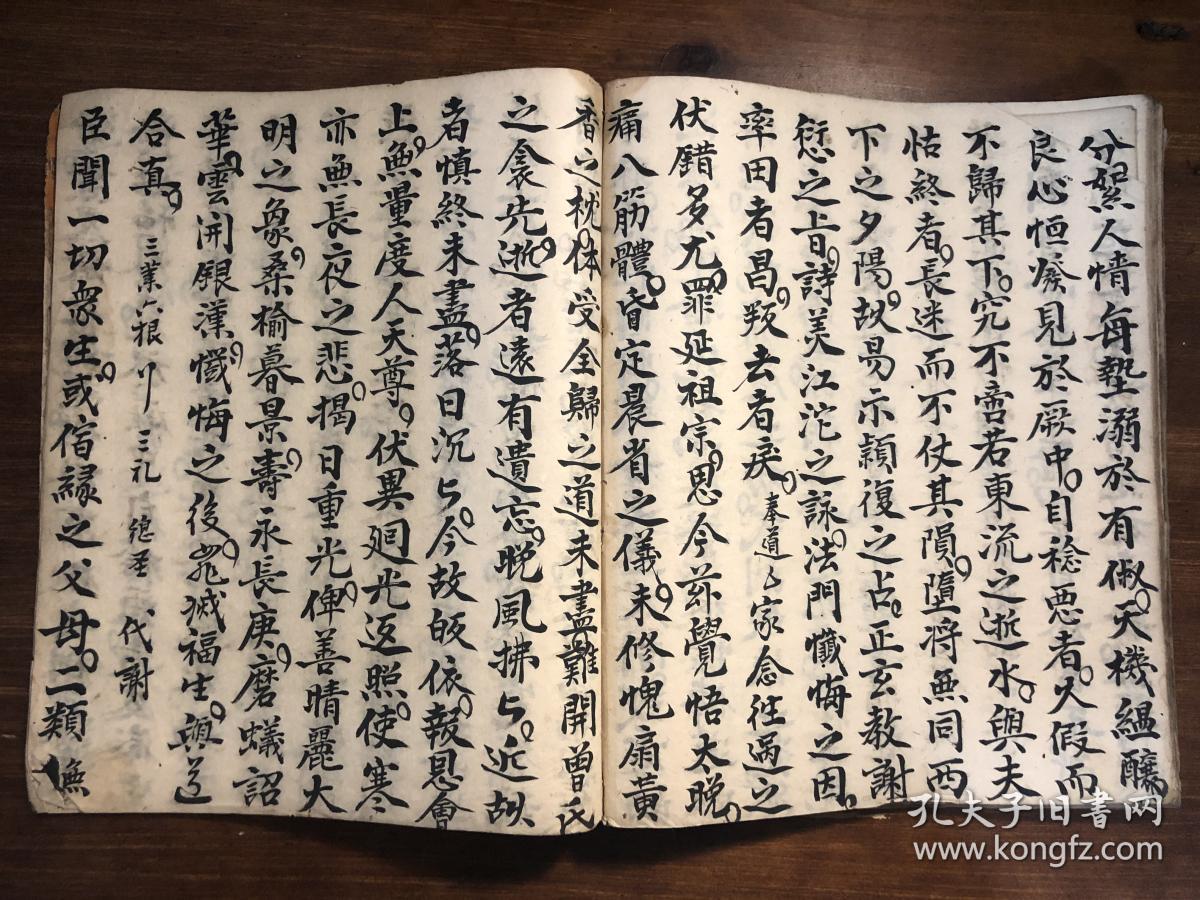 分縈人情每墊溺於有俶。天機緼釀。
良心恒癈見於厥中。自稔悪者。久假而
不歸其下。究不啻若東流之逝水。與夫
怙終者。長迷而不仗其隕墮。将無同西
下之夕陽。故易示頴復之占。正玄教謝
愆之旨。詩美江沱之詠。法門懴悔之因。
率田者昌。叛去者戾。奉道乙家念徃過之
伏錯多尤。罪延祖宗。思今茲覺悟太晚。
痛八筋體。昏定晨省之儀。未修愧扇黄
香之枕。体受全歸之道未盡難開曾氏
之衾。先逝者遠有遺忘。晚風拂与。近故
者慎終未盡。落日沉与。今故皈依。報恩會
上。無量度人天尊。伏異廻光返照。使寒
亦無長夜之悲。揭日重光。俾善晴麗大
明之象。桑榆暮景壽永長庚。磨蟻詔
華。雲開銀漢。懴悔之後。罪滅福生。與道
合真。 三業六根 三礼 代謝
臣聞一切衆生。或宿縁之父母。二類無
孔夫子旧書网
www.kongfz.com